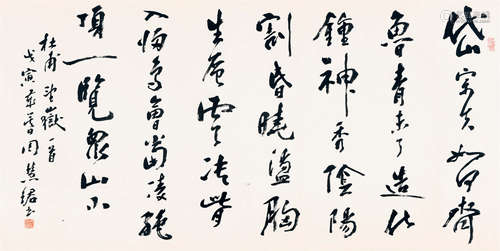 岱宗夫如何齊
魯青未了造化
鍾神秀陰陽
割昏曉盪胸
生層雲決眥
入歸鳥會當凌絕
頂一覽眾山小
杜甫望嶽一首
戊寅春周慧珺書